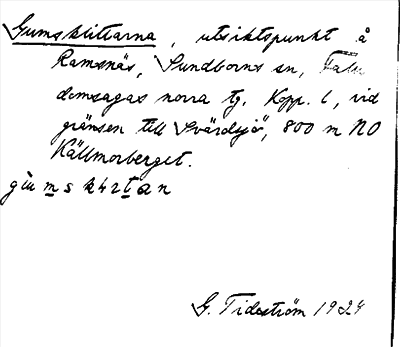 Gumsklittarna, utsiktspunkt å
Ramsnäs, Sundborns sn, Falu
domsagas norra tg, Kopp. l, vid
gränsen till Svärdsjö, 800 m NO
Källmorberget.
G. Tideström 1924